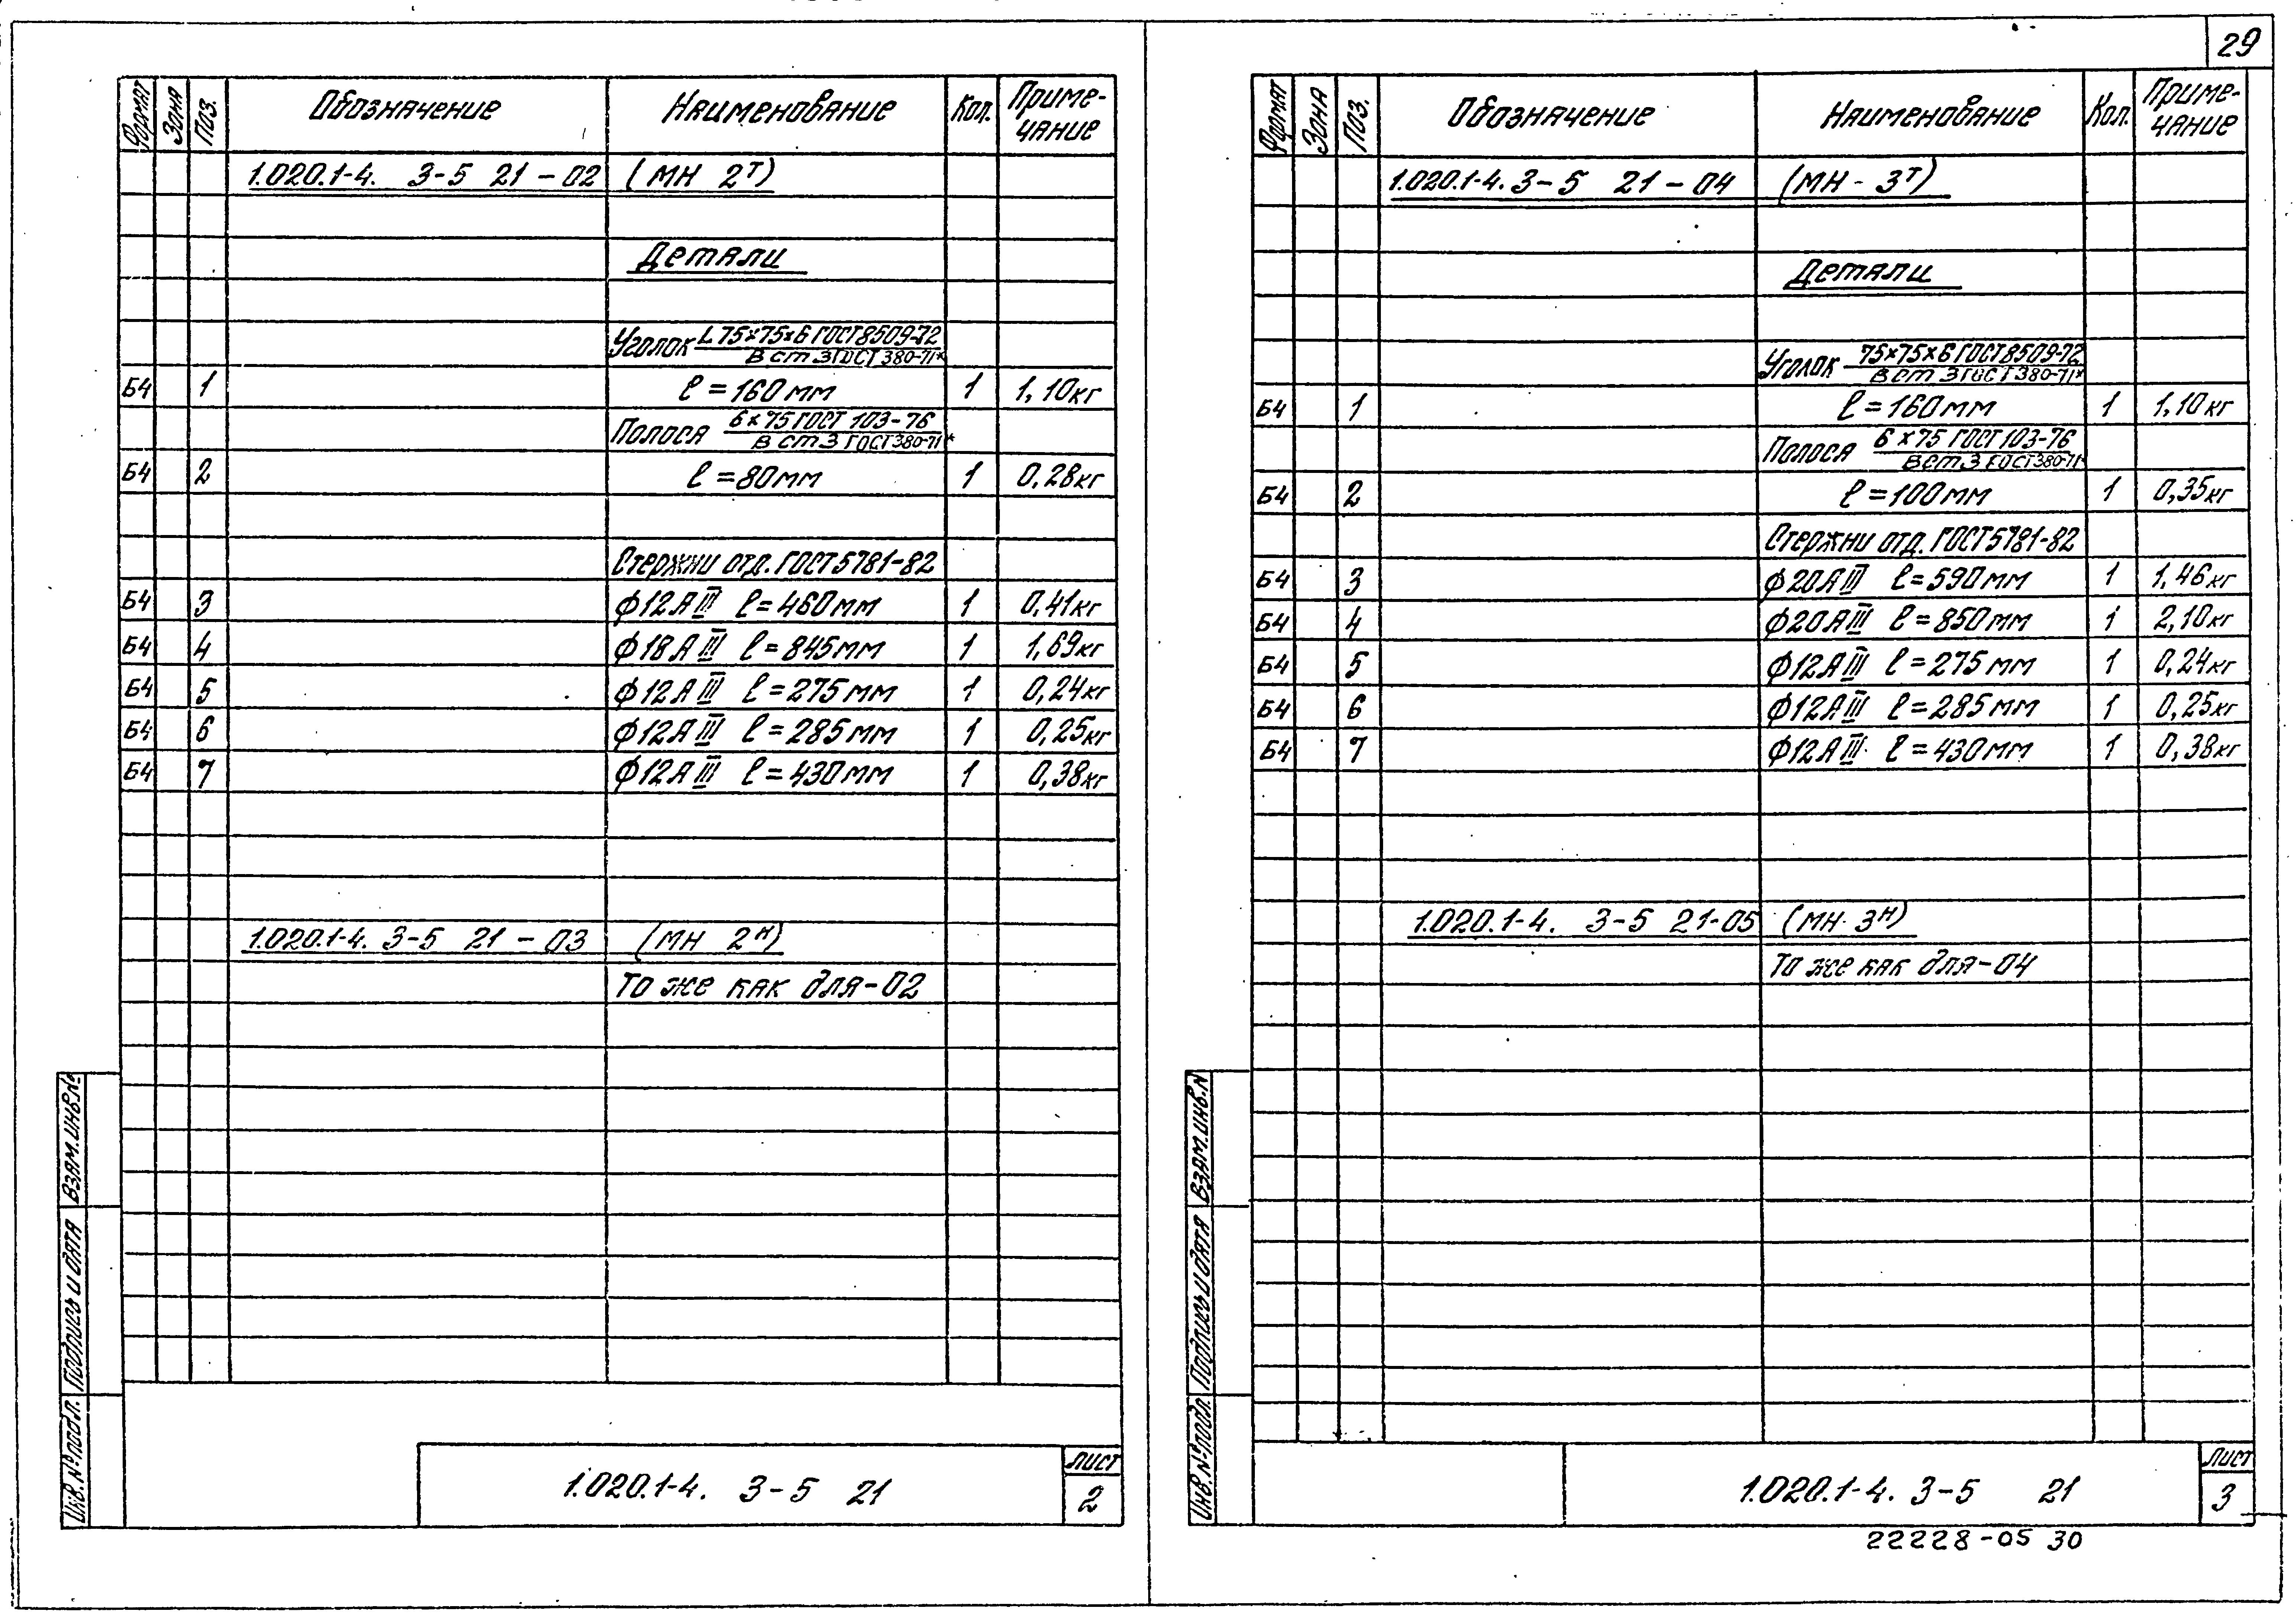 29
Формат Зона Поз. Обозначение Наименование Кол. Приме-
чание
1.020.1-4. 3-5 21-02 (МН 2Т)
Детали
Уголок L 75×75×6 ГОСТ 8509-72
В ст 3 ГОСТ 380-71*
Б4 1 ℓ=160мм 1 1,10кг
Полоса 6×75 ГОСТ 103-76
В ст 3 ГОСТ 380-71*
Б4 2 ℓ=80мм 1 0,28кг
Стержни отд. ГОСТ 5781-82
Б4 3 ф12АIII ℓ=460мм 1 0,41кг
Б4 4 ф18АIII ℓ=845мм 1 1,69кг
Б4 5 ф12АIII ℓ=275мм 1 0,24кг
Б4 6 ф12АIII ℓ=285мм 1 0,25кг
Б4 7 ф12АIII ℓ=430мм 1 0,38кг
1.020.1-4. 3-5 21-03 (МН 2Н)
То же как для-02
Взам.инв.№
Подпись и дата
Инв.№подл.
1.020.1-4. 3-5 21
Лист
2
Формат Зона Поз. Обозначение Наименование Кол. Приме-
чание
1.020.1-4. 3-5 21-04 (МН-3Т)
Детали
Уголок 75×75×6 ГОСТ 8509-72
В ст 3 ГОСТ 380-71*
Б4 1 ℓ=160мм 1 1,10кг
Полоса 6×75 ГОСТ 103-76
В ст 3 ГОСТ 380-71*
Б4 2 ℓ=100мм 1 0,35кг
Стержни отд. ГОСТ 5781-82
Б4 3 ф20АIII ℓ=590мм 1 1,46кг
Б4 4 ф20АIII ℓ=850мм 1 2,10кг
Б4 5 ф12АIII ℓ=275мм 1 0,24кг
Б4 6 ф12АIII ℓ=285мм 1 0,25кг
Б4 7 ф12АIII ℓ=430мм 1 0,38кг
1.020.1-4. 3-5 21-05 (МН-3Н)
То же как для-04
Взам.инв.N
Подпись и дата
Инв.№подл.
1.020.1-4. 3-5 21
Лист
3
22228-05 30